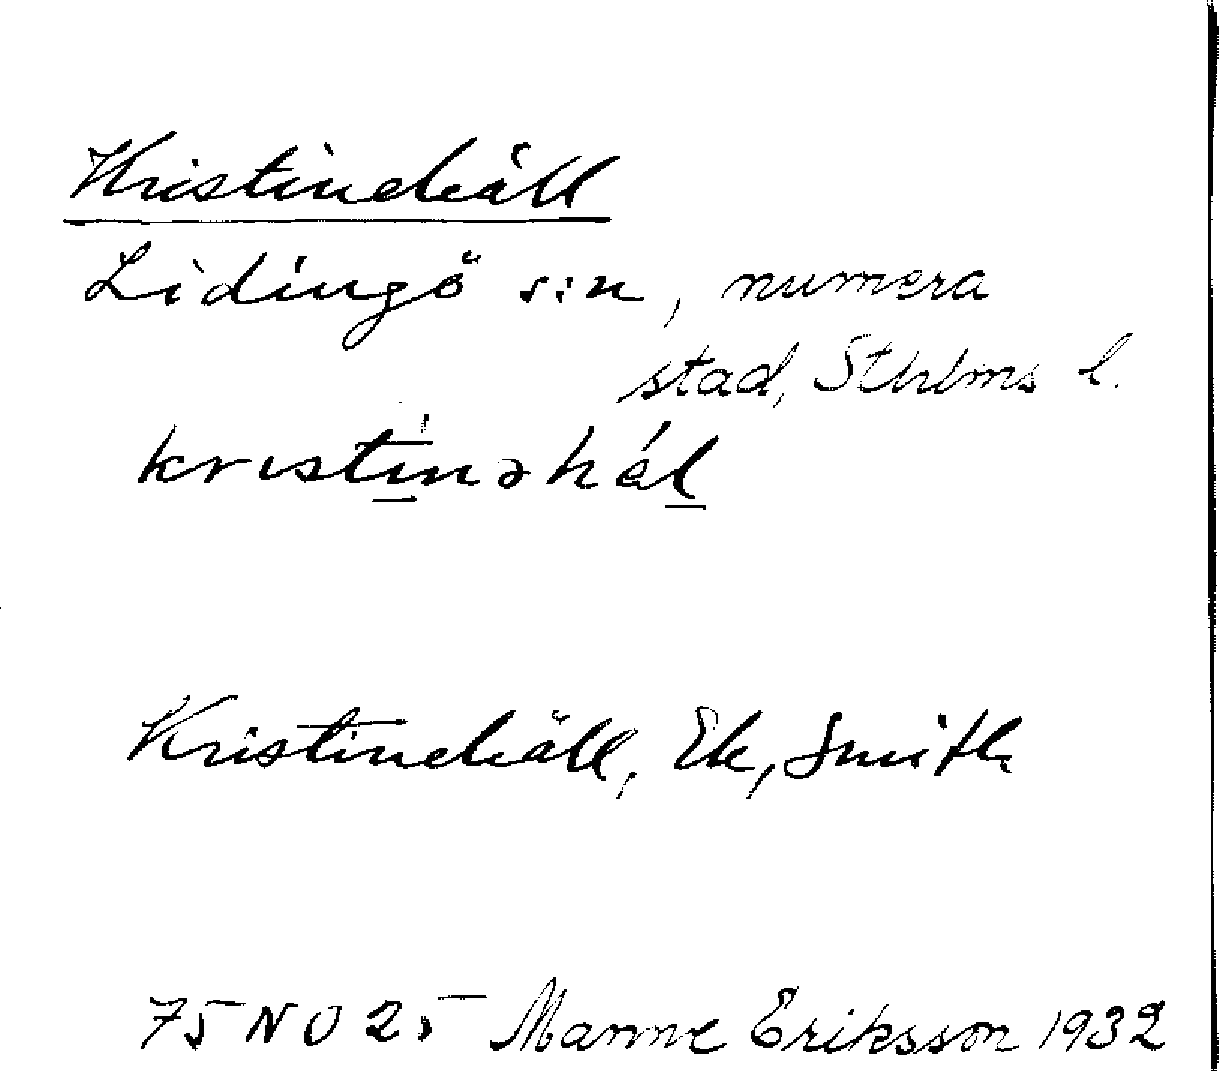 Kristinehäll
Lidingö s:n, numera
stad, Sthlms l.
krıstínəhál
Kristinehäll, Ek, Smith
75 NO 25 Manne Eriksson 1932